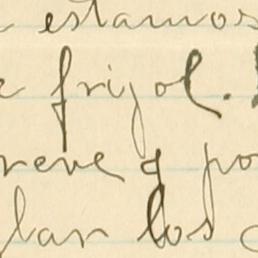 estamos
frijol.
reve y po
lan los